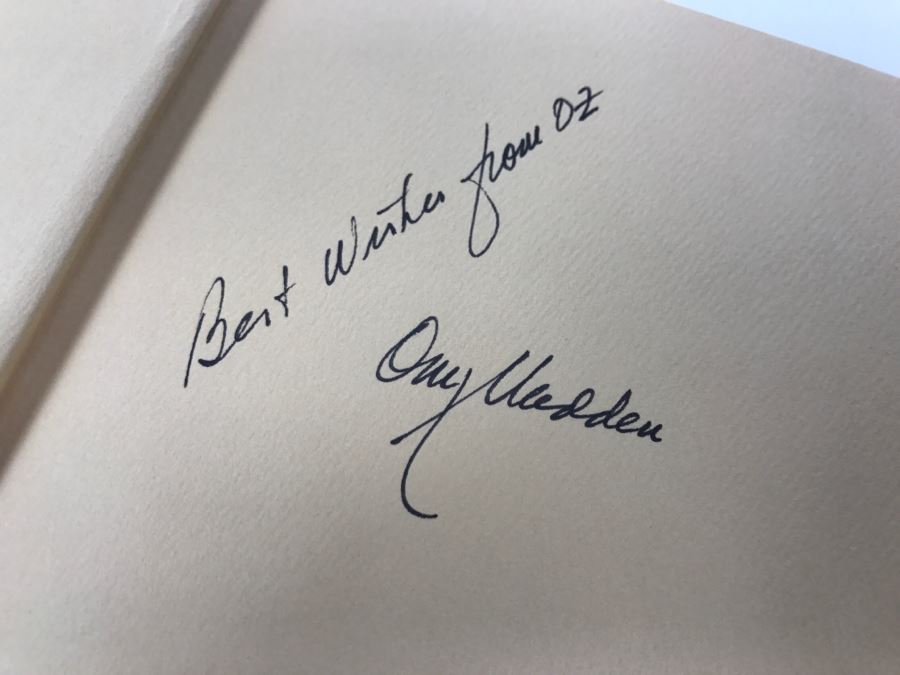 Best Wishes from OZ
Orry Madden